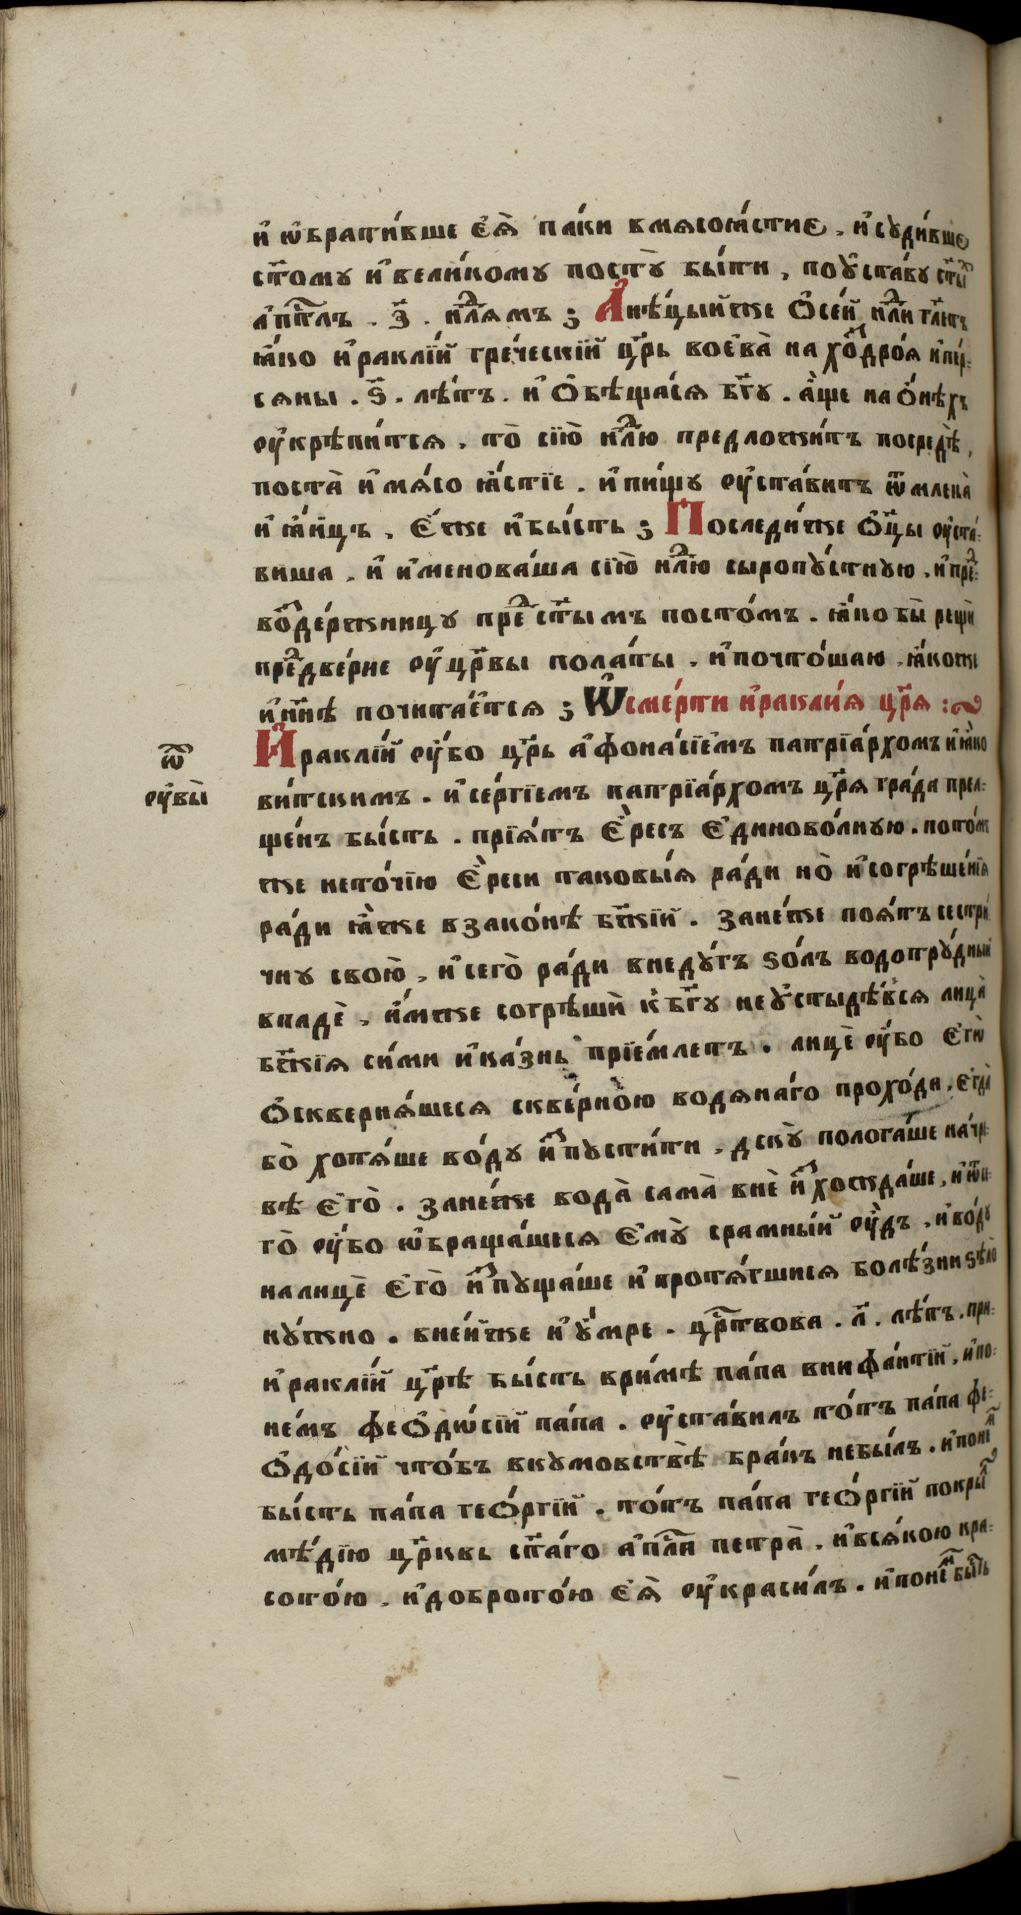 и҆ ѡ҆брати́вше є҆ѧ̀ па́ки вмѧсоꙗ́стие, и҆ сꙋди́вше
ст҃о́мꙋ и҆ вели́комꙋ постꙋ̀ бы́ти, поꙋ҆ста́вꙋ ст҃ы́х
а҆пⷭ҇лъ. з҃. нлⷣѧмъ ; А҆нѣ́цыи́же ѻ҆се́й нлⷣи гл҃ютъ
ꙗ҆́ко и҆ракл҄їй гре́ческїй цр҃ь воєва̀ на хо́здро́ѧ и҆пе́р-
сѧны. ѕ҃. лѣ́тъ. и҆ ѻ҆бѣща́сѧ бг҃ꙋ. а҆́ще на ѻ҆́нѣхъ
ᲂу҆крѣпи́тсѧ, то̀ сїю̀ нлⷣю предложи́тъ посредѣ̀,
поста̀ и҆ мѧ́со ꙗ҆́стїе. и҆ пи́щꙋ ᲂу҆ста́витъ ѿ млека̀
и҆ ꙗ҆и́цъ, є҆́же и҆ бы́сть ; Последи́же ѻ҆ц҃ы ᲂу҆ста́-
виша, и҆ и҆менова́ша сїю̀ нлⷣю сыропꙋ́стнꙋю, и҆ преⷣ-
воⷥде́ржницꙋ преⷣ ст҃ы́мъ посто́мъ. ꙗ҆́ко бы̀ рещѝ
преⷣдве́рие ᲂу҆ цр҃вы пола́ты, и҆ почто́шаю, ꙗ҆́коже
и҆ нн҃ѣ почита́є҆тсѧ ; Ѿ сме́рти и҆ракли́ѧ цр҃ѧ :~
И҆ракли́й ᲂу҆́бо цр҃ь а҆фона́сїє҆мъ патрїа́рхомъ и҆ ꙗ҆ко
ви́тскимъ. и҆ се́ргїемъ патрїа́рхомъ цр҃ѧ гра́да прел-
ще́нъ бы́сть. прїѧ́тъ є҆́ресь є҆диново́лнꙋю. пото́м
же нето́чїю є҆́реси таковы́ѧ ра́ди но̀ и҆ согрѣше́нїѧ
ра́ди ꙗ҆́же в зако́нѣ бж҃їй. зане́же поѧ́тъ сестри́
чнꙋ свою̀, и҆ сего̀ ра́ди в недꙋ́гъ ѕо́лъ водотрꙋ́дный
впадѐ, и҆́мже согрѣшѝ к бг҃ꙋ не ꙋ҆стыдѣ́всѧ лица̀
бж҃їѧ си́ми и҆ ка́знь прїе́млетъ. лицѐ ᲂу҆́бо є҆гѡ̀
ѻ҆сквернѧ́шесѧ скве́рною водѧна́го прохо́да, є҆гда̀
бо̀ хотѧ́ше во́дꙋ и҆ⷥпꙋсти́ти, дскꙋ̀ полога́ше на чр-
вѣ є҆го̀. зане́же вода̀ сама̀ внѐ и҆ⷥхожда́ше, и҆ ѿ н-
го̀ ᲂу҆́бо ѡ҆браща́шесѧ є҆мꙋ̀ срамны́й ᲂу҆́дъ, и҆ во́дꙋ
на лицѐ є҆го̀ и҆ⷥпꙋща́ше и҆ протѧ́гшисѧ болѣ́зни ѕѣло̀
нꙋ́жно. в не́йже и҆ ꙋ҆́мре. црⷭ҇твова. л҃. лѣ́тъ. при-
и҆ракли́й цр҃ѣ бы́сть в ри́мѣ па́па внифа́нтїй, и҆ по-
не́мъ феѻдѡ́сїй па́па. ᲂу҆ста́вилъ то́тъ па́па фе-
ѻдо́сїй что́бъ в кꙋмовствѣ̀ бра́къ не бы́лъ. и҆ по неⷨ
бы́сть па́па геѻ́ргїй. то́тъ па́па геѻ́ргїй покрыⷧ
мѣ́дїю цр҃ковь ст҃а́го а҆пⷭ҇ла петра̀, и҆ всѧ́кою кра-
сото́ю, и҆ доброто́ю є҆ѧ̀ ᲂу҆краси́лъ. и҆ по неⷨ бы́сть
ѿ
ᲂу҆́вы̀